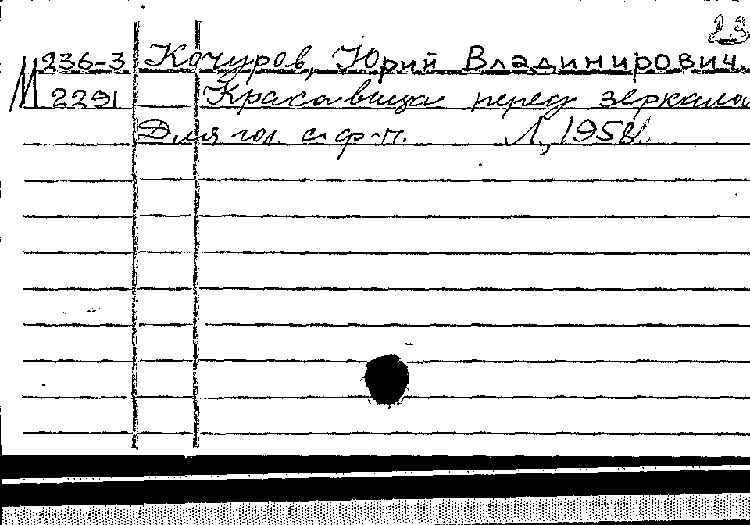 23
236-3 Кочуров, Юрий Владимирович.
М 2291 Красавица перед зеркало
Для гол. с ф-п. Л, 1958.